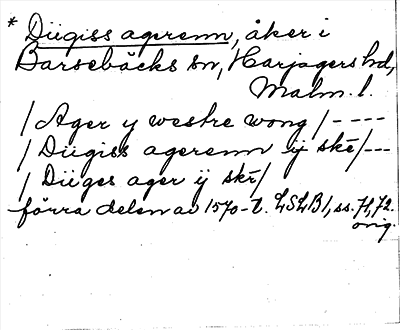 * Düigiss agerenn, åker i
Barsebäcks sn, Harjagers hd,
Malm. l.
/ Ager y westre wong / ----
/ Düigiss agerenn ÿ ske /---
/ Düges ager ÿ ske/
förra delen av 1570-t. LSLB1, ss. 71, 72.
orig.